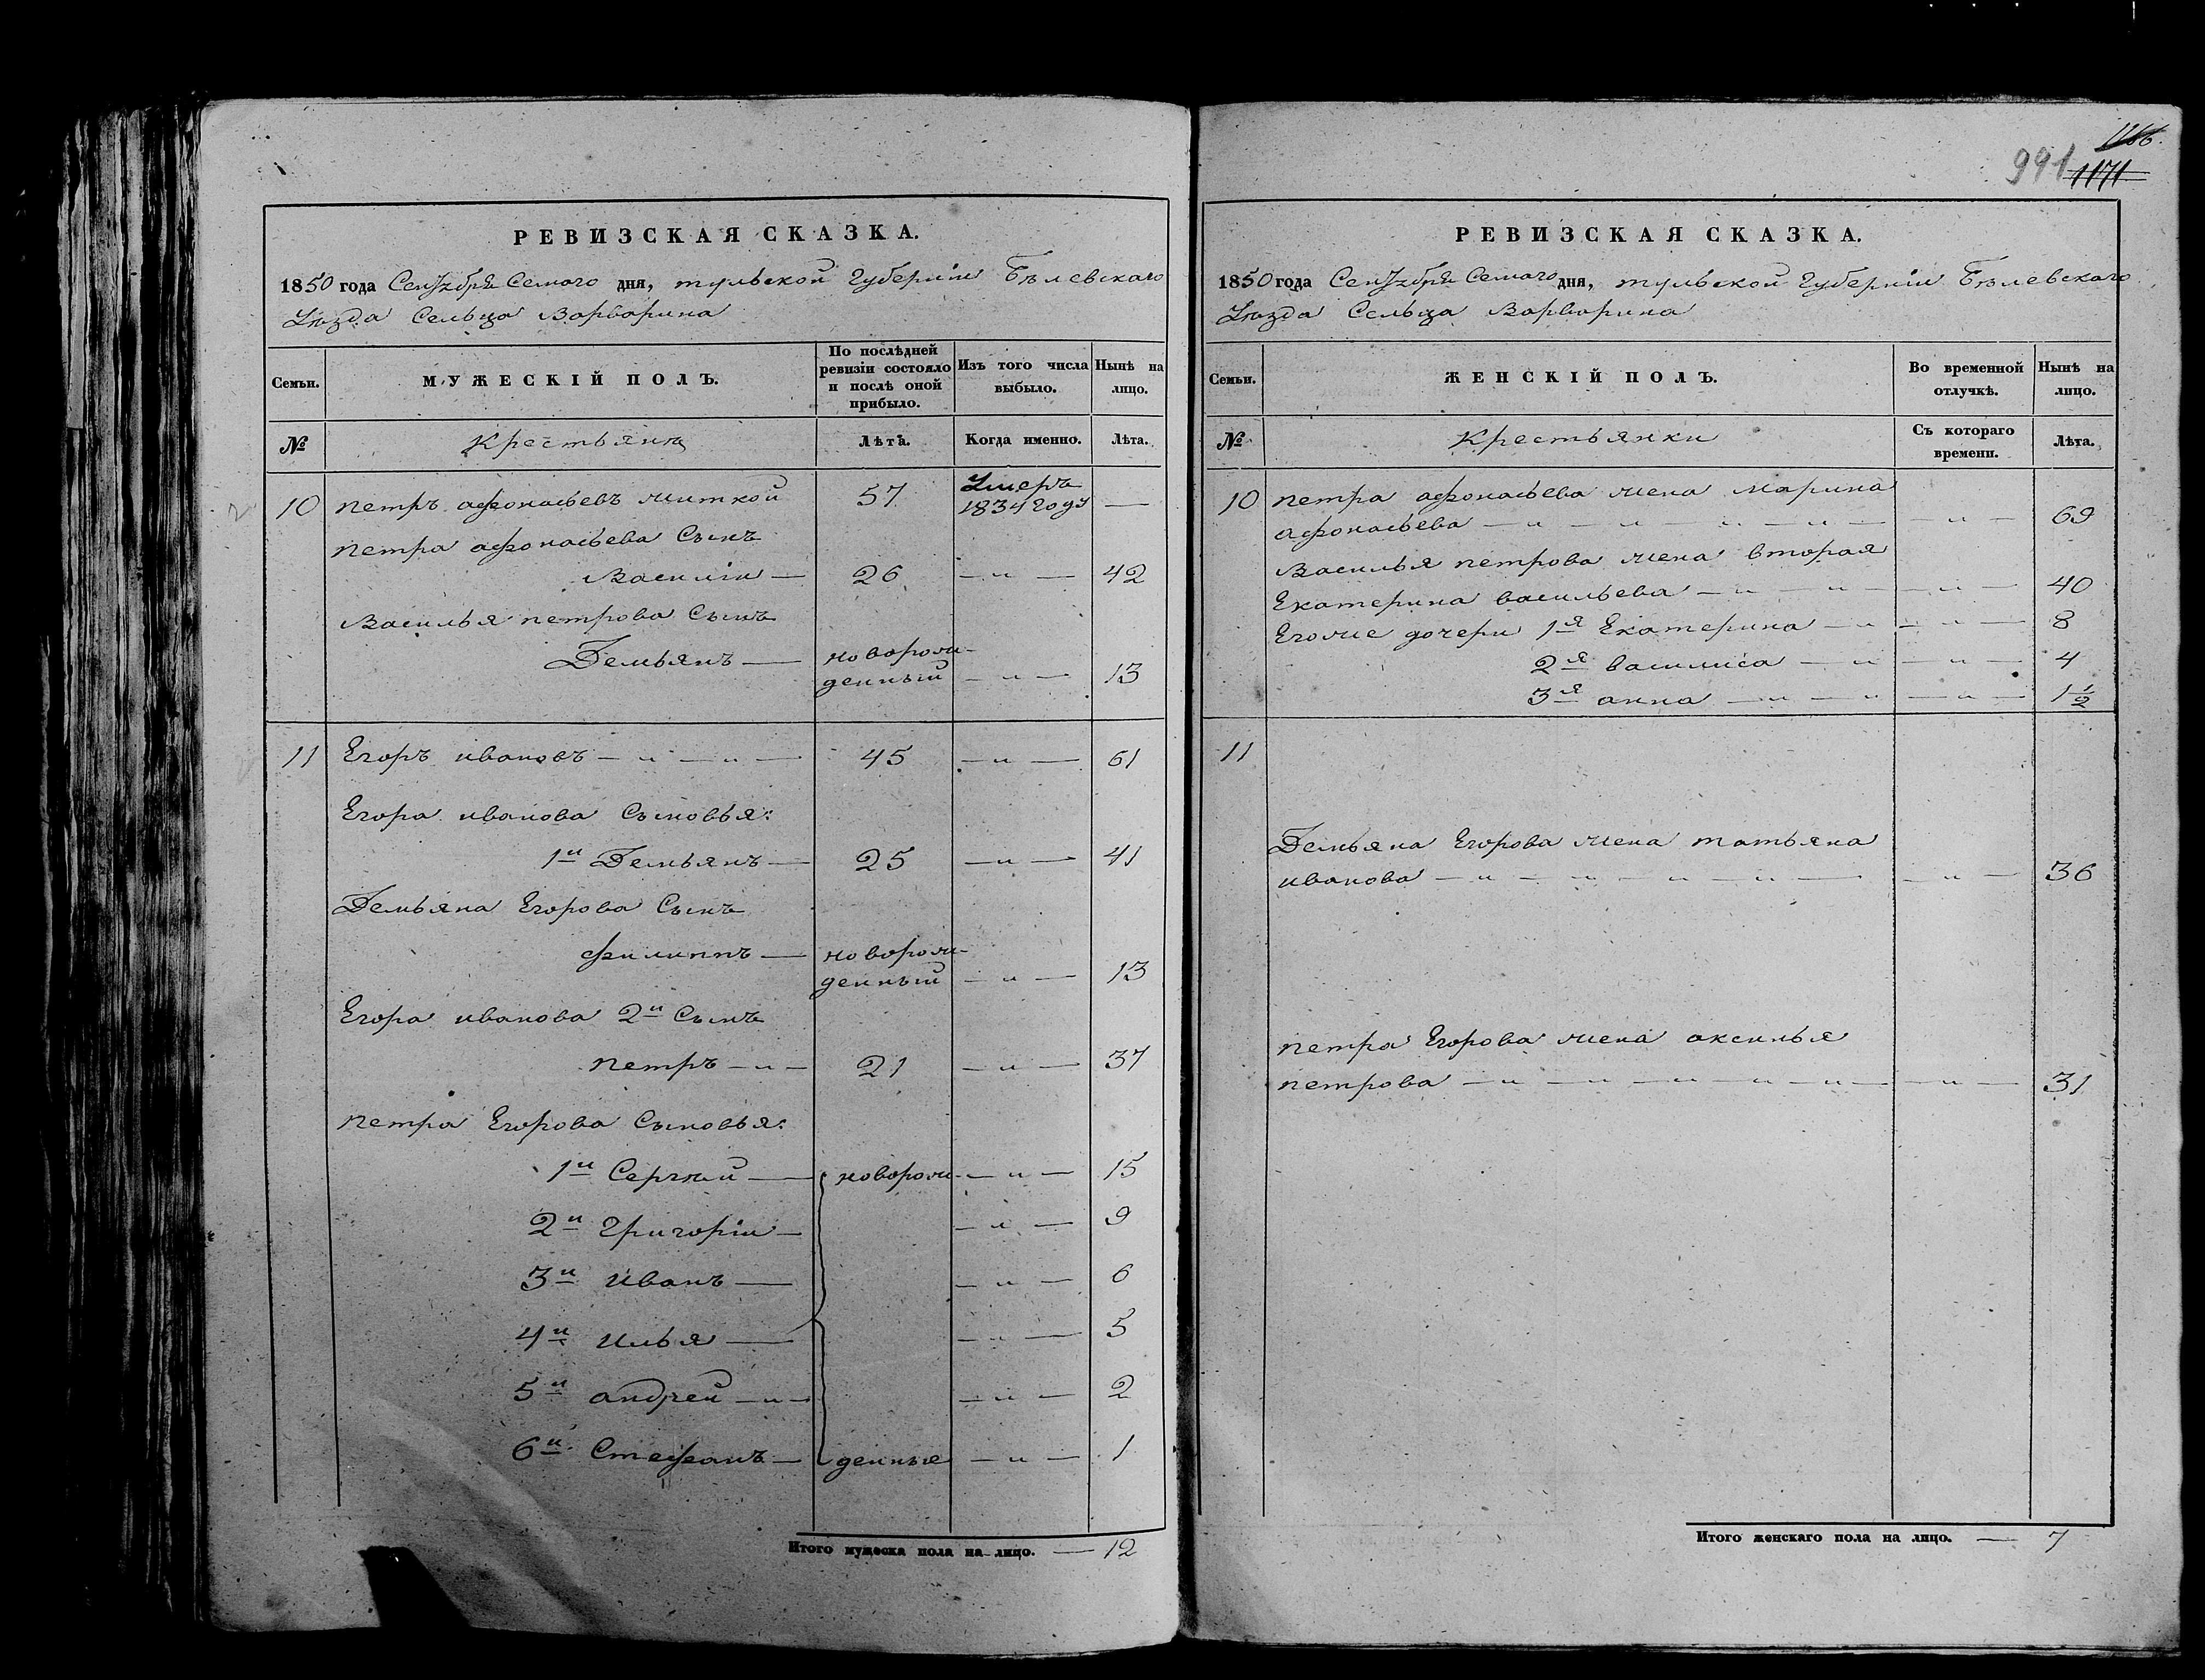 РЕВИЗСКАЯ СКАЗКА.
1850 года Сентября Семаго дня, тульской Губерніи Бѣлевскаго
Уѣзда Сельца Варварина
Семьи.
МУЖЕСКІЙ ПОЛЪ.
По послѣдней
ревизіи состояло
и послѣ оной
прибыло.
Изъ того числа
выбыло.
Нынѣ на
лицо.
№
Крестьянѣ
Лѣта.
Когда именно.
Лѣта.
10 петръ афонасьевъ житкой 57 Умеръ
1834 Году —
петра афонасьева Сынъ
Василіи — 26 — „ — 42
Василья петрова Сынъ
Демьянъ — новорож-
денный — „ — 13
11 Егоръ ивановъ — „ — „ — 45 — „ — 61
Егора иванова Сыновья:
1й Демьянъ — 25 — „ — 41
Демьяна Егорова Сынъ
филиппъ — новорож-
денный — „ — 13
Егора иванова 2й Сынъ
петръ — „ — 21 — „ — 37
петра Егорова Сыновья:
1й Сергѣй — новорож- — „ — 15
2й Григоріи — — „ — 9
3й иванъ — — „ — 6
4й илья — — „ — 5
5й андрей — „ — — „ — 2
6й Стефанъ — денные — „ — 1
Итого мужеска пола на лицо. — 12
991 1171
РЕВИЗСКАЯ СКАЗКА.
1850 года Сентября Семаго дня, тульской Губерніи Бѣлевскаго
Уѣзда Сельца Варварина
Семьи.
ЖЕНСКІЙ ПОЛЪ.
Во временной
отлучкѣ.
Нынѣ на
лицо.
№
Крестьянки
Съ котораго
времени.
Лѣта.
10 петра афонасьева жена марина
афонасьева — „ — „ — „ — „ — — „ — 69
Василья петрова жена вторая
Екатерина васильева — „ — „ — — „ — 40
Егоже дочери 1я Екатерина — „ — „ — 8
2я василиса — „ — „ — 4
3я анна — „ — „ — „ — 1½
11
Демьяна Егорова жена татьяна
иванова — „ — „ — „ — „ — — „ — 36
петра Егорова жена аксинья
петрова — „ — „ — „ — „ — „ — — „ — 31
Итого женскаго пола на лицо. — 7